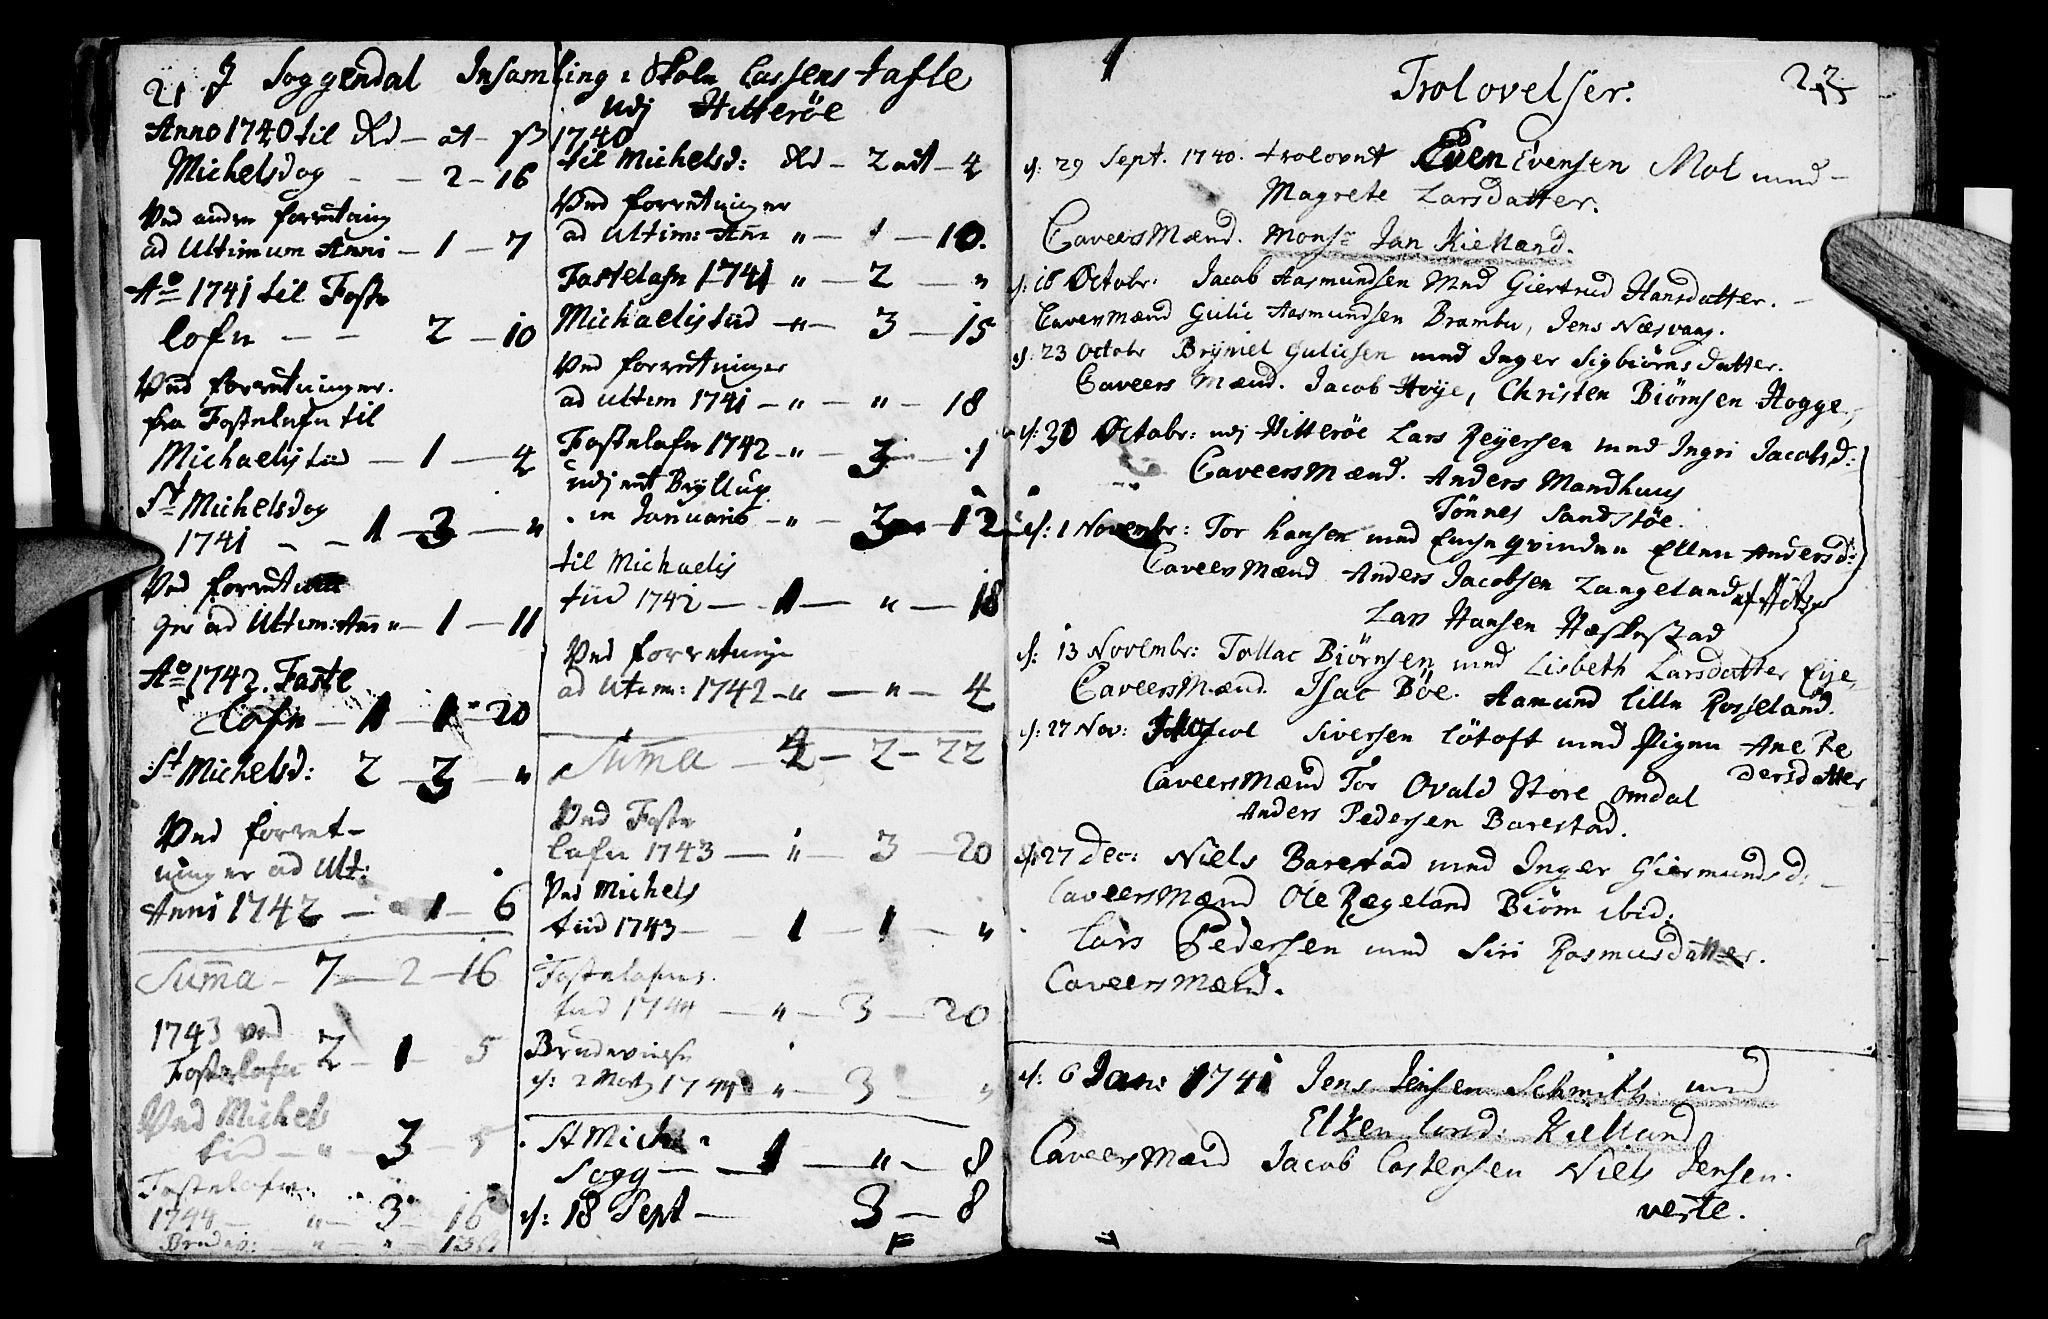 21 J Soggendal Insamling i Skole Cassens tafle
Anno 1740 til Rd — at — ß
Michelsdag — — 2 — 16
Ved andre forretning
ad Ultimum Anni — 1 — 7
Ao 1741 til Faste
lafn — — 2 — 10
Ved forretninger.
fra Fastelafn til
Michaelis tiid — 1 — 4
St Michelsdag
1741 — — 1 — 3 — "
Ved forretnin
ger ad Ultim: Ann " — 1 — 11
Ao 1742. Faste
lafn — 1 — 1 — 20
St Michelsd: 2 — 3 — "
Ved forret-
ninger ad Ult:
Anni 1742 — 1 — 6
Summa — 7 — 2 — 16
1743 ved
Fastelafn 2 — 1 — 5
Ved Michels
tid — " — 3 — 5
Fastelafn
1744 — " — 3 — 16
Brudev: — " — " — 13
udj Hitteröe
1740
til Michelsd: Rd — 2 at — 4
Ved forretninger
ad Ultim: Ann " — 1 — 10.
Fastelafn 1741 " — 2 — "
Michaelis tiid — " — 3 — 15
Ved forretninger
ad Ultim 1741 — " — " — 18
Fastelafn 1742 — " — 3 — 1
udj et Bryllup
in Januario — " — 3 — 12
til Michaelis
tiid 1742 — 1 — " — 18
Ved forretninge
ad Utim: 1742 — " — " — 4
Summa — 4 — 2 — 22
Ved Faste
lafn 1743 — " — 3 — 20
Ved Michels
tiid 1743 — 1 — 1 — "
Fastelafns
tiid 1744 — " — 3 — 20
Brudevielse
d: 2 Marty 1744 " — 3 — "
St Mich:
Sogg — 1 — " — 8
d: 18 Sept — 3 — 8
Trolovelser. 22
d: 29 Sept. 1740. trolovet Even Evensen Mol med
Magrete Larsdatter.
CaveersMænd. Monsr Jan Kielland.
d: 16 Octobr: Jacob Aasmundsen Med Giertrud Hansdatter.
Caversmænd Gulic Aasmundsen Brambu, Jens Næsvaag.
d: 23 Octobr Brÿniel Gulicsen med Inger Sigbiörnsdatter.
Caveers Mænd. Jacob Høye, Christen Biørnsen Hogge,
d: 30 Octobr: udj Hitteröe Lars Reÿersen med Ingri Jacobsd:
CaveersMænd. Anders Mandhuus
Tönnes Sandstöe.
d: 1 Novembr: Tor hansen med Enke qvinden Ellen Andersd:
Caveers Mænd Anders Jacobsen Langeland
Lars Hansen Hæskestad
d: 13 Novembr: Tollac Biörnsen med Lisbeth Larsdatter Eÿe,
CaveersMænd. Isac Böe. Aamund lille Rosseland.
d: 27 Nov: Siversen lötoft med Pigen Ane Pe
dersdatter
CaveersMænd Tor Ovald Store Omdal
Anders Pedersen Barestad.
d: 27 Dec: Niels Barestad med Inger Giermundsd:
CaveersMænd Ole Rægeland Biørn ibid:
Lars Pedersen med Siri Rasmusdatter.
CaveersMænd.
d: 6 Jan: 1741 Jens Jensen Schmith med
Elken Lord: Kielland
CaveersMænd Jacob Carstensen Niels Jensen.
verte.